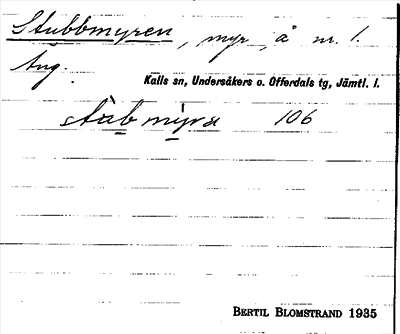 Stubbmyren, myr, å nr. 1.
Äng.
Kalls sn, Undersåkers o. Offerdals tg, Jämtl. l.
106
BERTIL BLOMSTRAND 1935